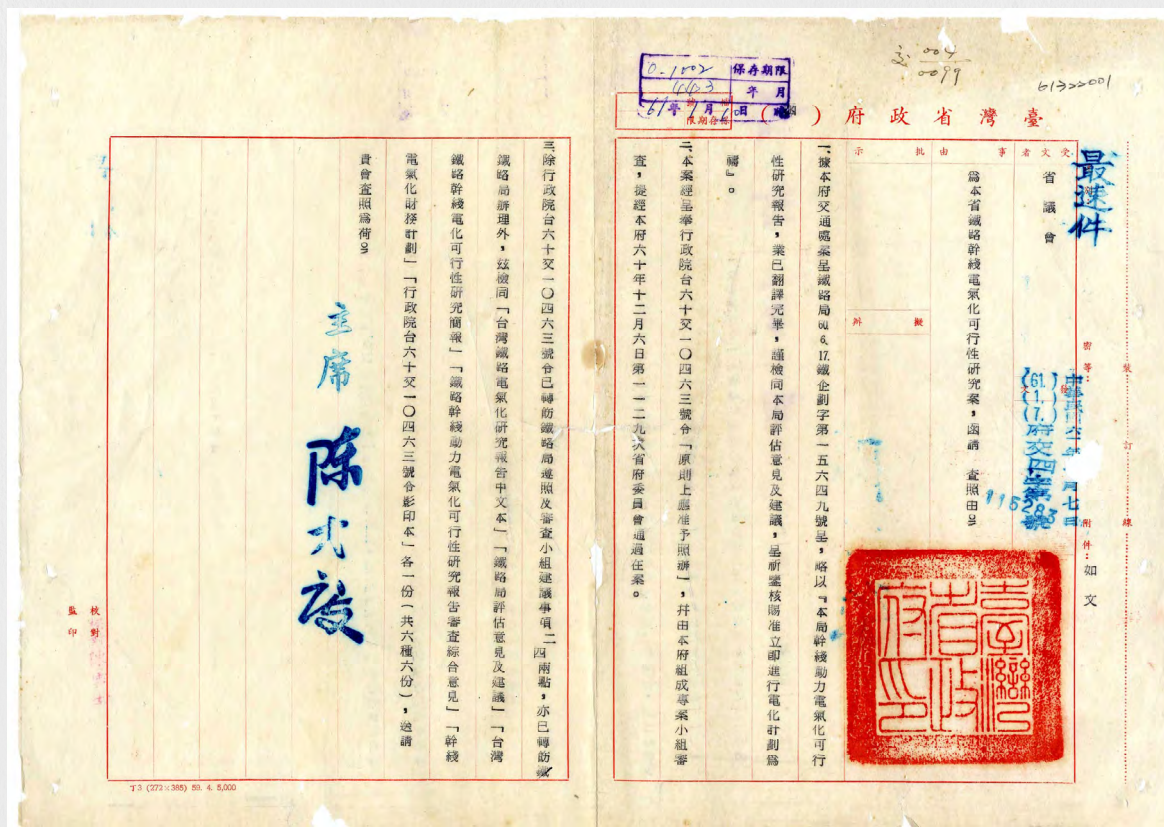 004
0099
61322001
保存期限
年 月
0-1002
443
61年1月 日
限期存保
臺灣省政府（ ）
最速件
受文者
省議會
事由
為本省鐵路幹綫電氣化可行性研究案，函請　查照由。
批示
擬辦
密等：
裝訂線
附件：如文
中華民國六十一年一月七日
(61)(1.)(7.)府交四字第 號
115283
一、據本府交通處案呈鐵路局60.6.17.鐵企劃字第一五六四九號呈，略以『本局幹綫動力電氣化可行
性研究報告，業已翻譯完畢，謹檢同本局評估意見及建議，呈祈鑒核賜准立即進行電化計劃為
禱』。
二、本案經呈奉行政院台六十交一〇四六三號令「原則上應准予照辦」，幷由本府組成專案小組審
查，提經本府六十年十二月六日第一一二九次省府委員會通過在案。
三、除行政院台六十交一〇四六三號令已轉飭鐵路局遵照及審查小組建議事項二四兩點，亦已轉飭鐵
鐵路局辦理外，茲檢同「台灣鐵路電氣化研究報告中文本」「鐵路局評估意見及建議」「台灣
鐵路幹綫電化可行性研究簡報」「鐵路幹綫動力電氣化可行性研究報告審查綜合意見」「幹綫
電氣化財務計劃」「行政院台六十交一〇四六三號令影印本」各一份（共六種六份），送請
貴會查照為荷。
主席 陳大慶
臺灣省政府印
校對
監印
T3 (272×385) 59. 4. 5,000